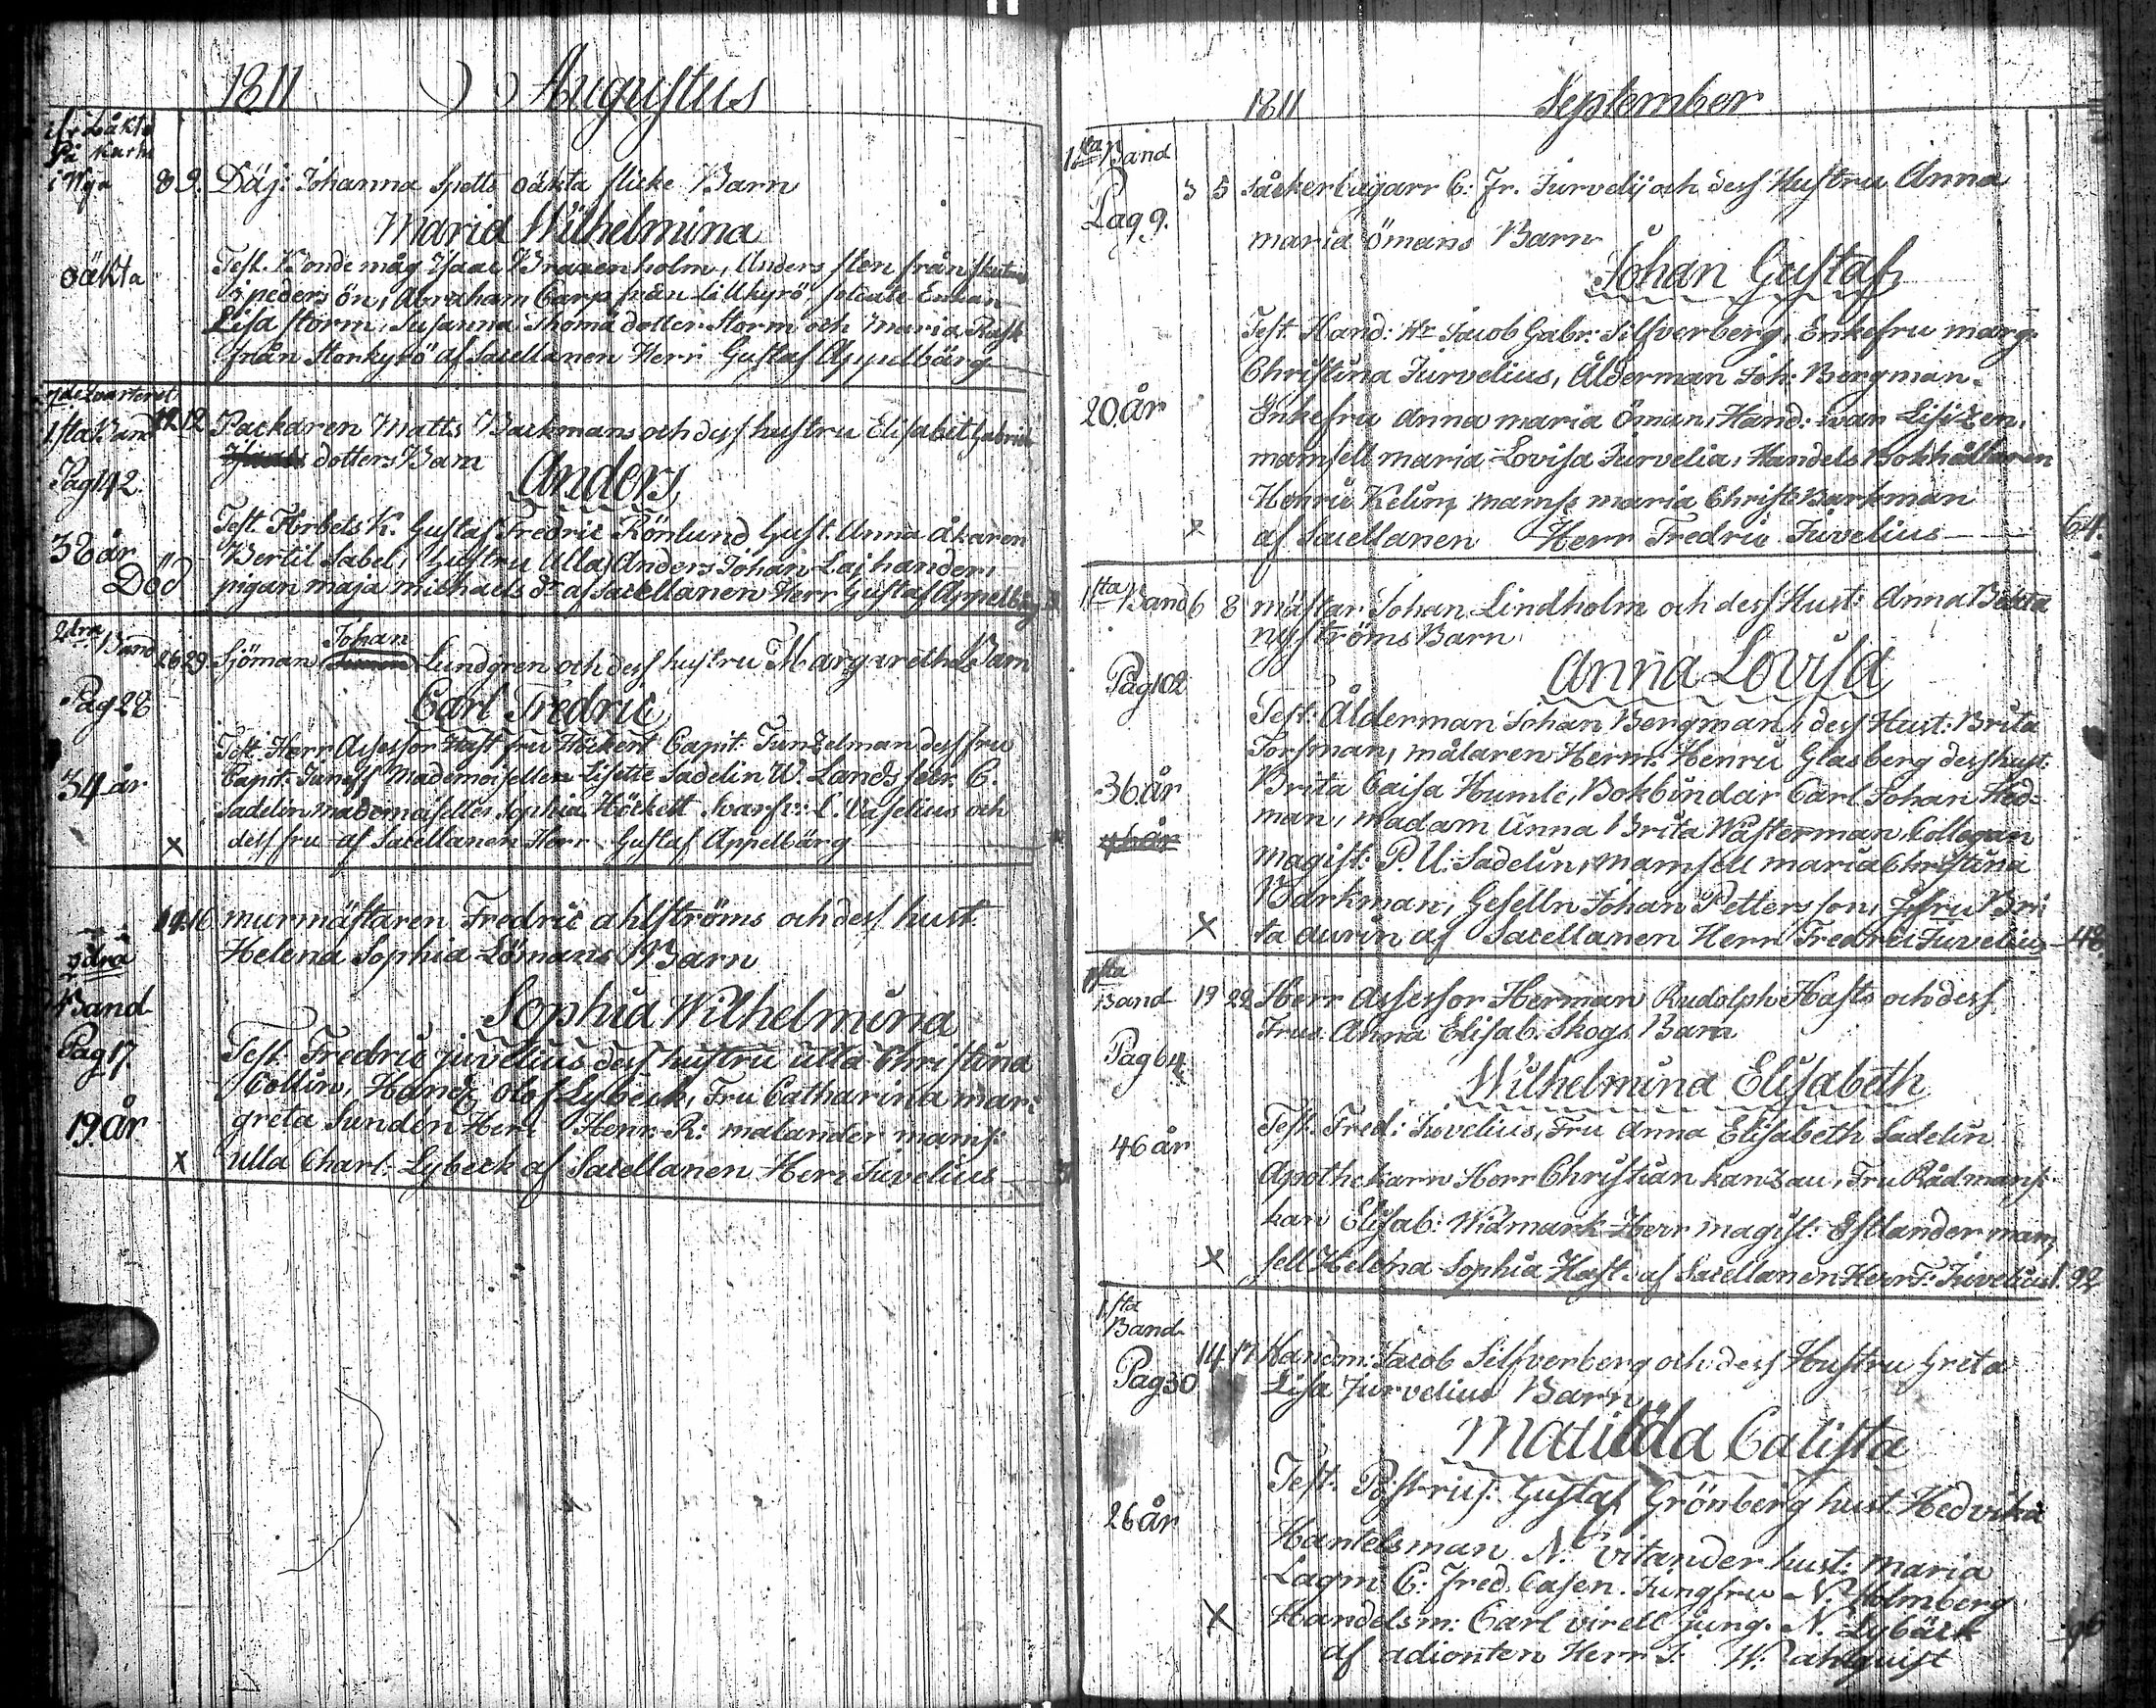 1811 Augustus
På
8 9. Däj: Johanna Spetts oäkta flicke Barn
Maria Wilhelmina
oäkta
Test. Bonde måg Isaac Brazenholm, Anders sten från
peders ön, Abraham Carp från Lillkyrö,
Lisa storm, Susanna Thomä dotter Storm och Maria Rask
från Storkyrö af Sacellanen Herr Gustaf Appelbärg
1sta Band
12 12 Packaren Matts Backmans och dess hustru Elisabet Gabriels
dotters Barn
Pag 142
Anders
Test. Arbets K. Gustaf Fredric Rönlund Hust. Anna åkaren
38 år
Bertil Sabel, Hustru Ulla, Anders Johan Lajhander,
Död
pigan maja michaels dr af Sacellanen Herr Gustaf Appelbärg
2dra Band
Johan
26 29 Sjöman Lundgren och dess hustru Margaretha Barn
Pag 28
Carl Fredric
Test. Herr Assessor Hast fru Höckert Capit: Tunzelman dess fru
34 år
Capit: Mademoisellen Lisette Sadelin W. Lands secr. C.
Sadelin, mademoiselles Sophia Höckert C. Vaselius och
x dess fru af Sacellanen Herr Gustaf Appelbärg
14 16 murmästaren Fredric ahlströms och dess hust.
Helena Sophia Lömans Barn
2dra
Band
Sophia Wilhelmina
Pag 17.
Test. Fredric juvelius dess hustru ulla Christina
Collin, Hand. Olof Lybeck, Fru Catharina mar:
19 år
greta Sundén Herr Henr: R: malander mams:
x ulla Charl: Lybeck af Sacellanen Herr Juvelius
1811 September
1sta Band
Pag 9.
3 5 Såckerbagarr C: Fr. Jurvelij och dess Hustru Anna
maria ömans Barn
Johan Gustaf
Test. Hand: Hr Jacob Gabr: Silfverberg, Enkefru marg:
Christina Jurvelius, Ålderman Joh: Bergman.
20 år
Enkefru Anna maria öman, Hand: ivan Lisizen,
mamsell maria Lovisa Jurvelia, Handels Bokhållaren
Henric Kelin, mams: maria Christ: Barkman
x af Sacellanen Herr Fredric Juvelius 64.
1sta Band
6 8 mästar Johan Lindholm och dess Hust: Anna Brita
nyströms Barn
Pag 102
Anna Lovisa
Test: Ålderman Johan Bergman, dess Hust: Brita
Forsman, målaren Herr: Henric Glasberg dess hust:
36 år
Brita Caisa Humle, Bokbindar Carl Johan Hed=
man, madam Anna Brita Wästerman, Collegan
magist: P. U. Sadelin, mamsell maria Christina
Barkman, Geselln Johan Petterson, Jgfru Bri
x ta aurin af Sacellanen Herr Fredric Juvelius 48.
1sta
Band
19 22 Herr Assessor Herman Rudolph Hasts och dess
Frus Anna Elisab. Skogs Barn
Pag 64
Wilhelmina Elisabeth
Test. Fred: Juvelius, Fru Anna Elisabeth Sadelin
46 år
Apothekarn Herr Christian kanzau, Fru Rådmans
kan Elisab: Widmark Herr magist: Estlander mam,
x sell Helena Sophia Hast af Sacellanen Herr F: Juvelius 1. 92
1 sta
Band
14 17 Handm: Jacob Silfverberg och dess Hustru Greta
Pag 30
Lisa Jurvelius Barn
Matilda Calista
Test. Gustaf Grönberg hust. Hedvika
26 år
Hantelsman N. vitander hust: maria
Lagm: C: Fred. Casen. Jungfru N. Holmberg
x Handelsm: Carl virell jung. N. Lybäck
af adionten Herr J. W. ahlqvist